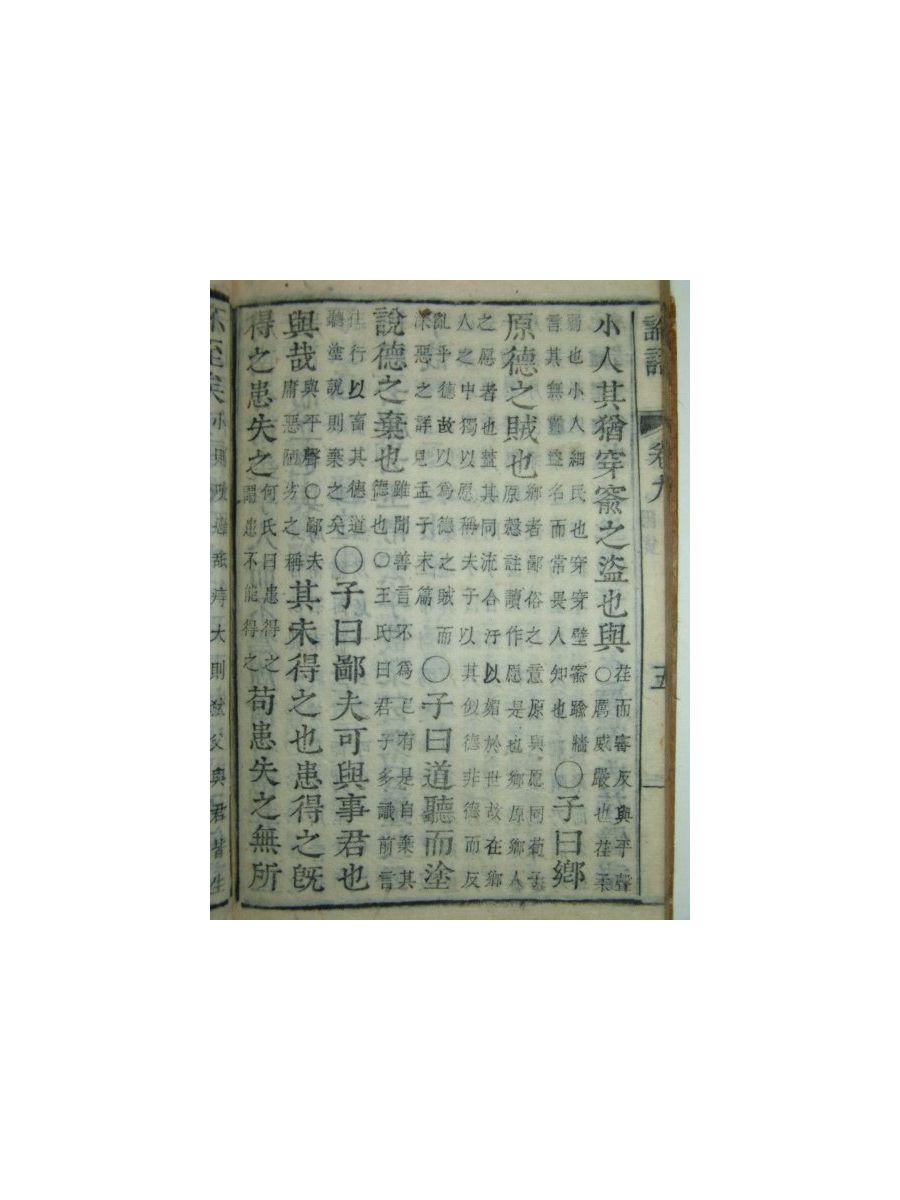 論語 卷九 五
小人其猶穿窬之盜也與荏而審反與平聲○厲威嚴也荏柔
弱也小人細民也穿穿壁窬踰牆言其無實盜名而常畏人知也○子曰鄉
原德之賊也鄉者鄙俗之意原與愿同荀子原慤註讀作愿是也鄉原鄉人
之愿者也蓋其同流合汙以媚於世故在鄉人之中獨以愿稱夫子以其似德非德而反
亂乎德故以為德之賊而深惡之詳見孟子末篇○子曰道聽而塗
說德之棄也雖聞善言不為己有是自棄其德也○王氏曰君子多識前言
往行以畜其德道聽塗說則棄之矣○子曰鄙夫可與事君也
與哉與平聲○鄙夫庸惡陋劣之稱其未得之也患得之既
得之患失之何氏曰患得之謂患不能得之苟患失之無所
不至矣小則吮癰舐痔大則弒父與君皆生